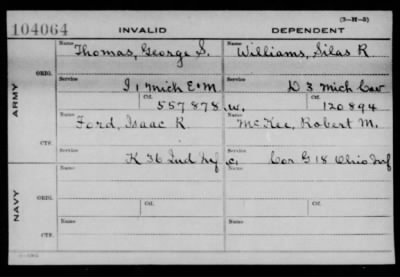 (3-H-3)
104064 INVALID DEPENDENT
Name Thomas, George S. Name Williams, Silas R
ORIG.
Service I 1 Mich E & M. Service D 3 Mich Cav
ARMY
Ctf. 557878 W. Ctf. 120894
Name Ford, Isaac K Name McKee, Robert M.
CTF.
Service K 36 Ind Inf C. Service Cor G 18 Ohio Inf
Name Name
NAVY
ORIG.
Service Service
Ctf. Ctf.
Name Name
CTF.
Service Service